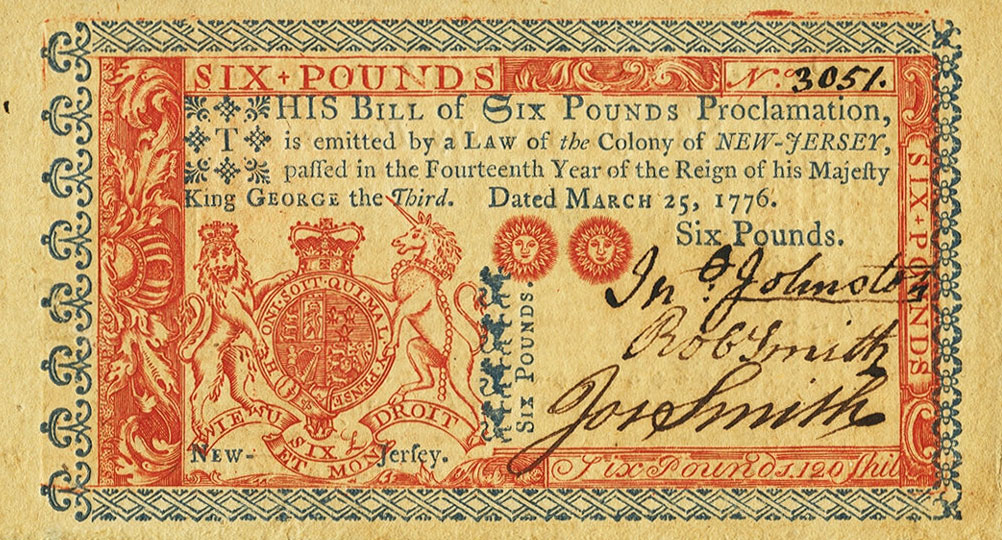 SIX + POUNDS
No. 3051.
THIS BILL of SIX POUNDS Proclamation,
is emitted by a LAW of the Colony of NEW-JERSEY,
paſſed in the Fourteenth Year of the Reign of his Majeſty
King GEORGE the Third. Dated MARCH 25, 1776.
Six Pounds.
SIX + POUNDS
HONI·SOIT·QUI·MAL·Y·PENSE
DIEU ET MON DROIT
SIX £
SIX POUNDS.
Jno. Johnston
Robt Smith
Jos Smith
NEW- Jerſey.
Six Pounds. 120 ſhil